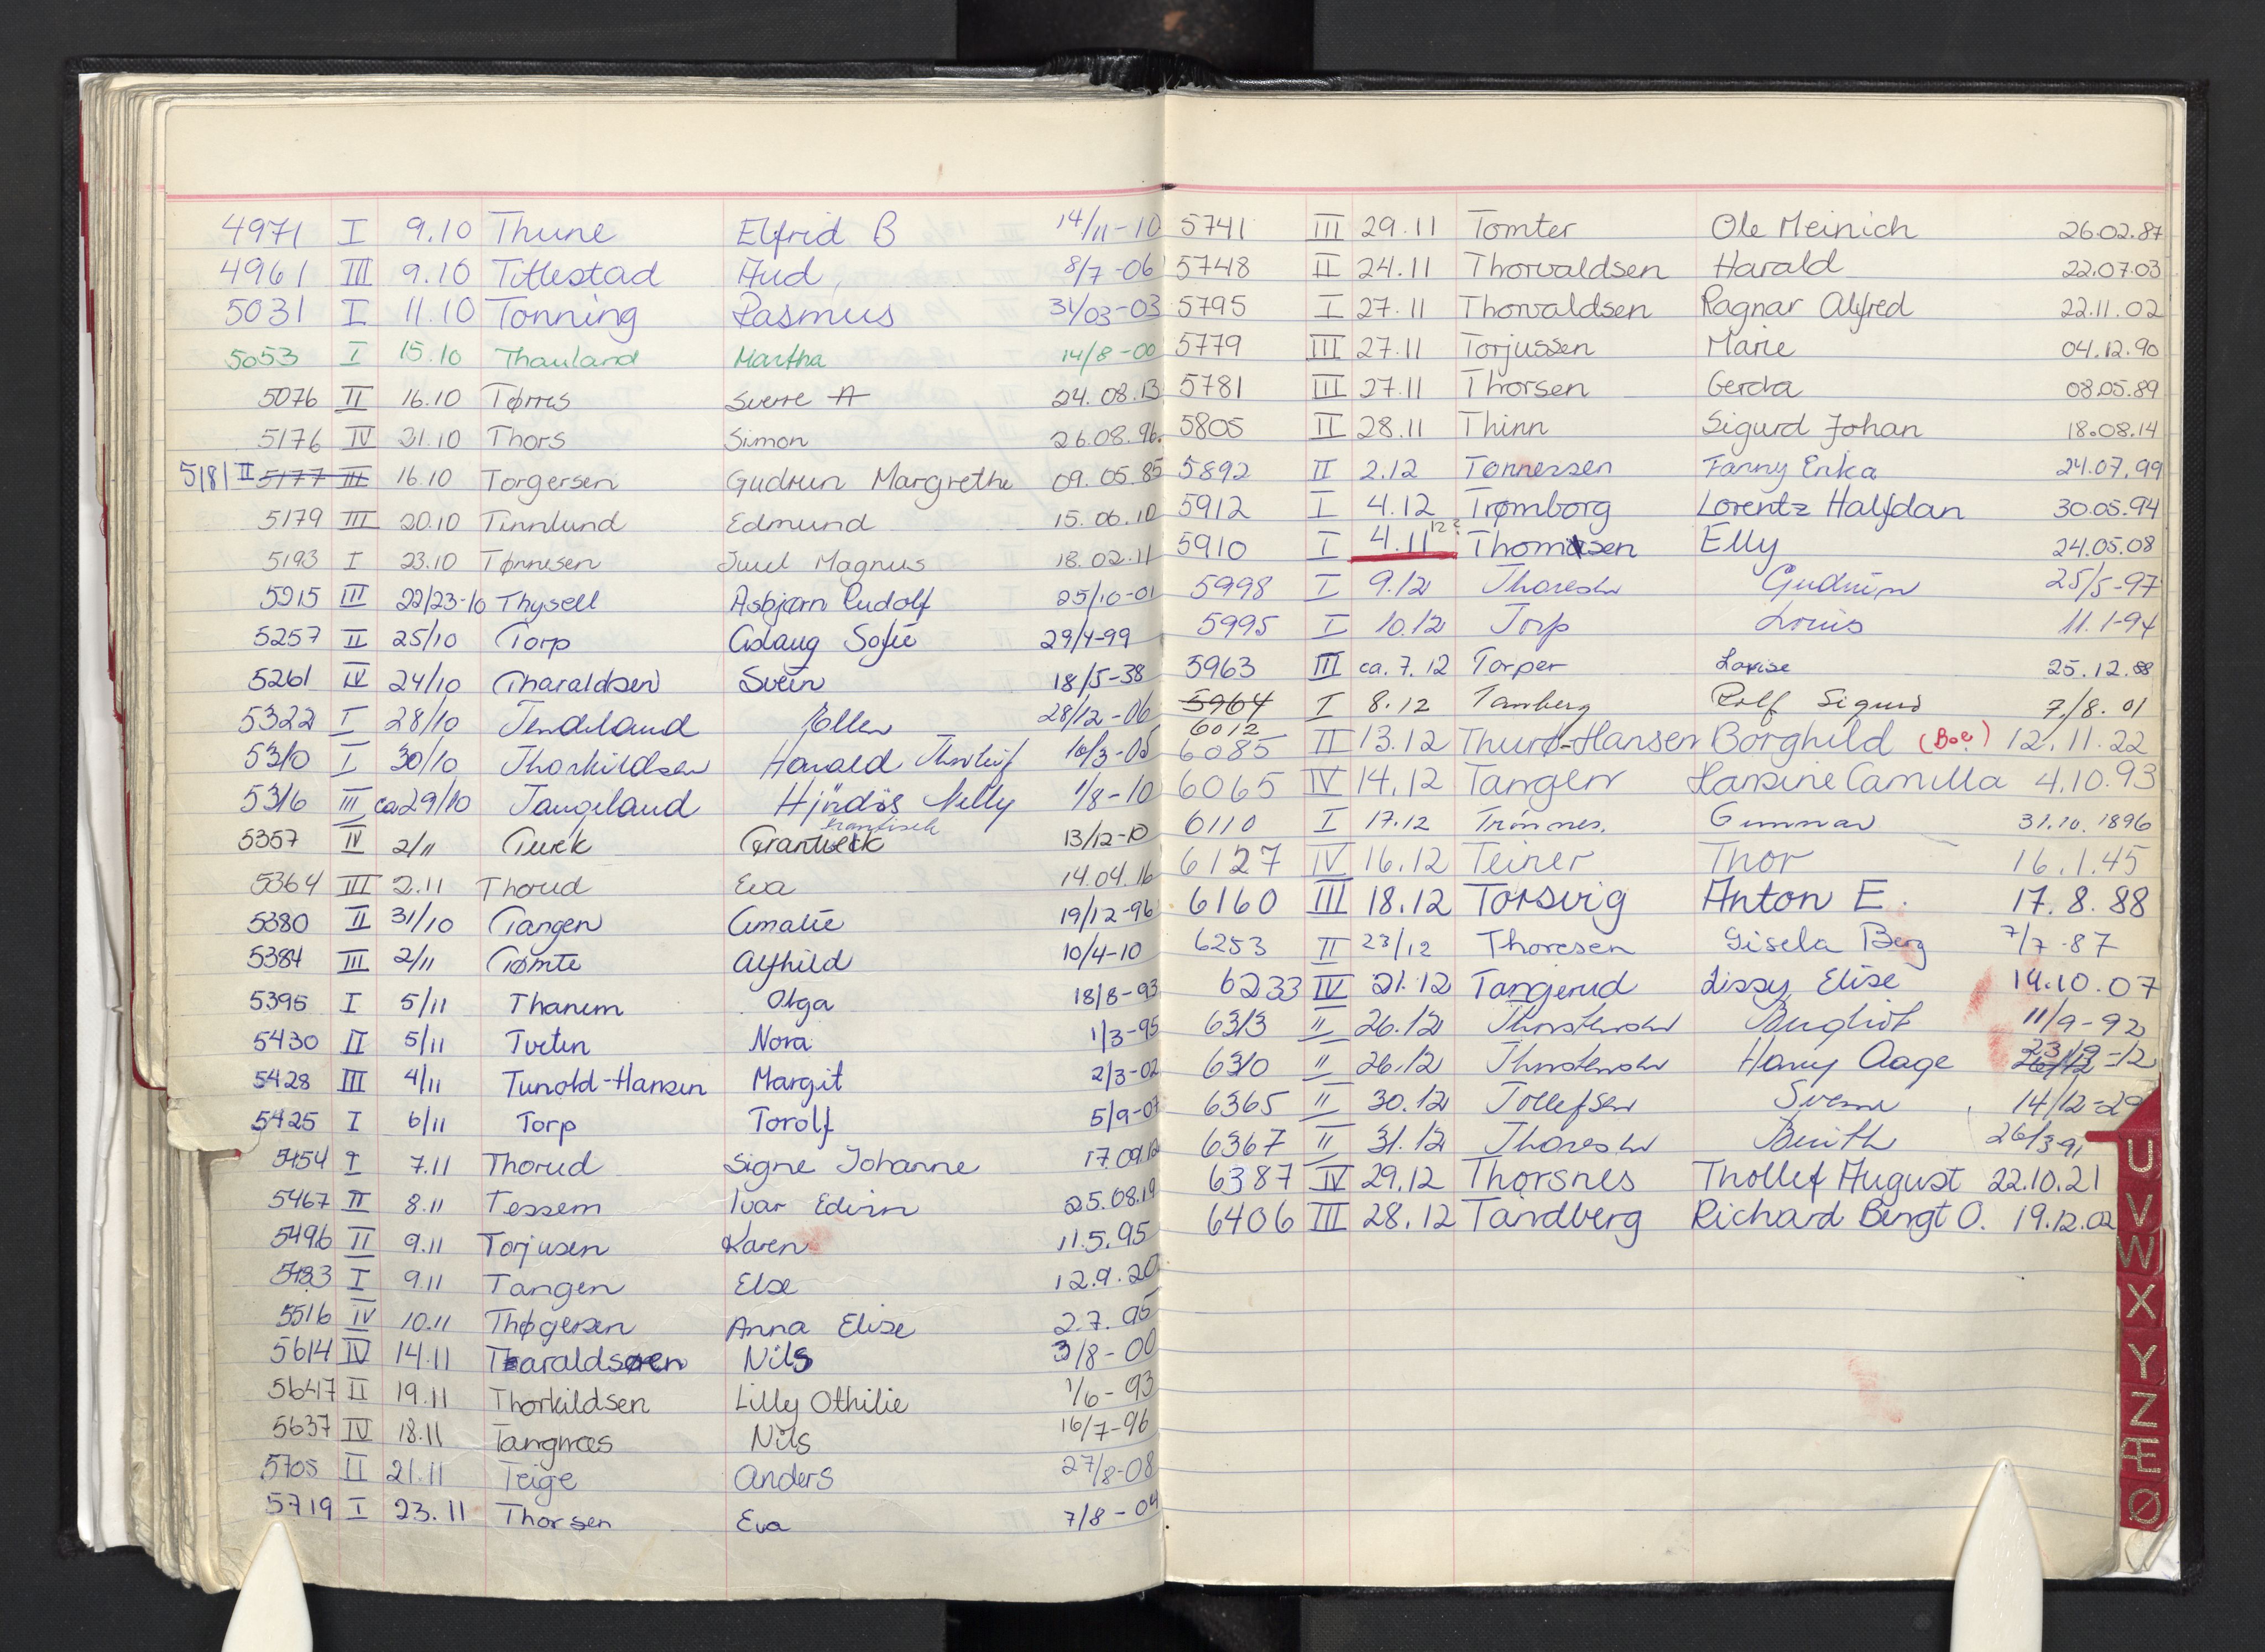 4971 I 9.10 Thune Elfrid B 14/11-10
4961 III 9.10 Titlestad Aud 8/7-06
5031 I 11.10 Tonning Rasmus 31/03-03
5053 I 15.10 Thauland Martha 14/8-00
5076 II 16.10 Tørres Sverre A 24.08.13
5176 IV 21.10 Thors Simon 26.08.96.
5181 II 5177 III 16.10 Torgersen Gudrun Margrethe 09.05.85
5179 III 20.10 Tinnlund Edmund 15.06.10
5193 I 23.10 Tønnesen Juul Magnus 18.02.11
5215 III 22/23-10 Thysell Asbjørn Rudolf 25/10-01
5257 II 25/10 Torp Aslaug Sofie 29/4-99
5261 IV 24/10 Tharaldsen Svein 18/5-38
5322 I 28/10 Tendeland Ellen 28/12-06
5310 I 30/10 Thorkildsen Harald Thorleif 16/3-05
5316 III ca 29/10 Tangeland Hjördis Nelly 1/8-10
Frantisek
5357 IV 2/11 Turek 13/12-10
5364 III 2.11 Thorud Eva 14.04.16
5380 II 31/10 Tangen Amalie 19/12-96
5384 III 2/11 Tømte Alfhild 10/4-10
5395 I 5/11 Thanem Olga 18/8-93
5430 II 5/11 Tveten Nora 1/3-95
5428 III 4/11 Tunold-Hansen Margit 2/3-02
5425 I 6/11 Torp Torolf 5/9-07
5454 I 7.11 Thorud Signe Johanne 17.09.12
5467 II 8.11 Tessem Ivar Edvin 25.08.19
5496 II 9.11 Torjusen Karen 11.5.95
5483 I 9.11 Tangen Else 12.9.20
5516 IV 10.11 Thøgersen Anna Elise 2.7.05
5614 IV 14.11 Tharaldsen Nils 3/8-00
5647 II 19.11 Thorkildsen Lilly Othilie 1/6-93
5637 IV 18.11 Tangnæs Nils 16/7-96
5705 II 21.11 Teige Anders 27/8-08
5719 I 23.11 Thorsen Eva 7/8-04
5741 III 29.11 Tomter Ole Meinich 26.02.87
5748 II 24.11 Thorvaldsen Harald 22.07.03
5795 I 27.11 Thorvaldsen Ragnar Alfred 22.11.02
5779 III 27.11 Torjussen Marie 04.12.90
5781 III 27.11 Thorsen Gerda 08.05.89
5805 II 28.11 Thinn Sigurd Johan 18.08.14
5892 II 2.12 Tønnessen Fanny Erika 24.07.99
5912 I 4.12 Trømborg Lorentz Halfdan 30.05.94
5910 I 4.11 12? Thomsen Elly 24.05.08
5998 I 9.12 Thoresen Gudrun 25/5-97
5995 I 10.12 Torp Louis 11.1-94
5963 III ca. 7.12 Torper Lovise 25.12.88
5964 I 8.12 Tanberg Rolf Sigurd 7/8.01
6012
6085 II 13.12 Thurø-Hansen Borghild (Boe!) 12.11.22
6065 IV 14.12 Tangen Hansine Camilla 4.10.93
6110 I 17.12 Trönnes. Gunnar 31.10.1896
6127 IV 16.12 Teiner Thor 16.1.45
6160 III 18.12 Torsvig Anton E. 17.8.88
6253 II 23/12 Thoresen Gisela Berg 7/7-87
6233 IV 21.12 Tangerud Lissy Elise 14.10.07
6313 II 26.12 Thorstensen Bergliot 11/9-92
6310 II 26.12 Thorstensen Harry Aage 23/9-12
6365 II 30.12 Tollefsen 14/12-29
6367 II 31.12 Thoresen Berith 26/3-91
6387 IV 29.12 Thorsnes Thollef August 22.10.21
6406 III 28.12 Tandberg Richard Bengt O. 19.12.02
U
V
W
X
Y
Z
Æ
Ø